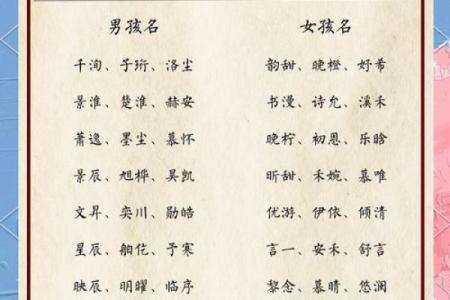 男孩名 女孩名
千洵、子珩、洛尘 韵甜、晚橙、妤希
景淮、楚淮、赫安 书漫、诗允、溪禾
萧逸、墨尘、慕怀 晚柠、初恩、乐晗
景辰、旭桦、昊凯 昕甜、禾婉、慕唯
文昇、奕川、勋皓 优游、伊依、倾清
星辰、舶佗、予寒 言一、安禾、舒言
映辰、明曜、临序 黎念、慕晴、悠澜